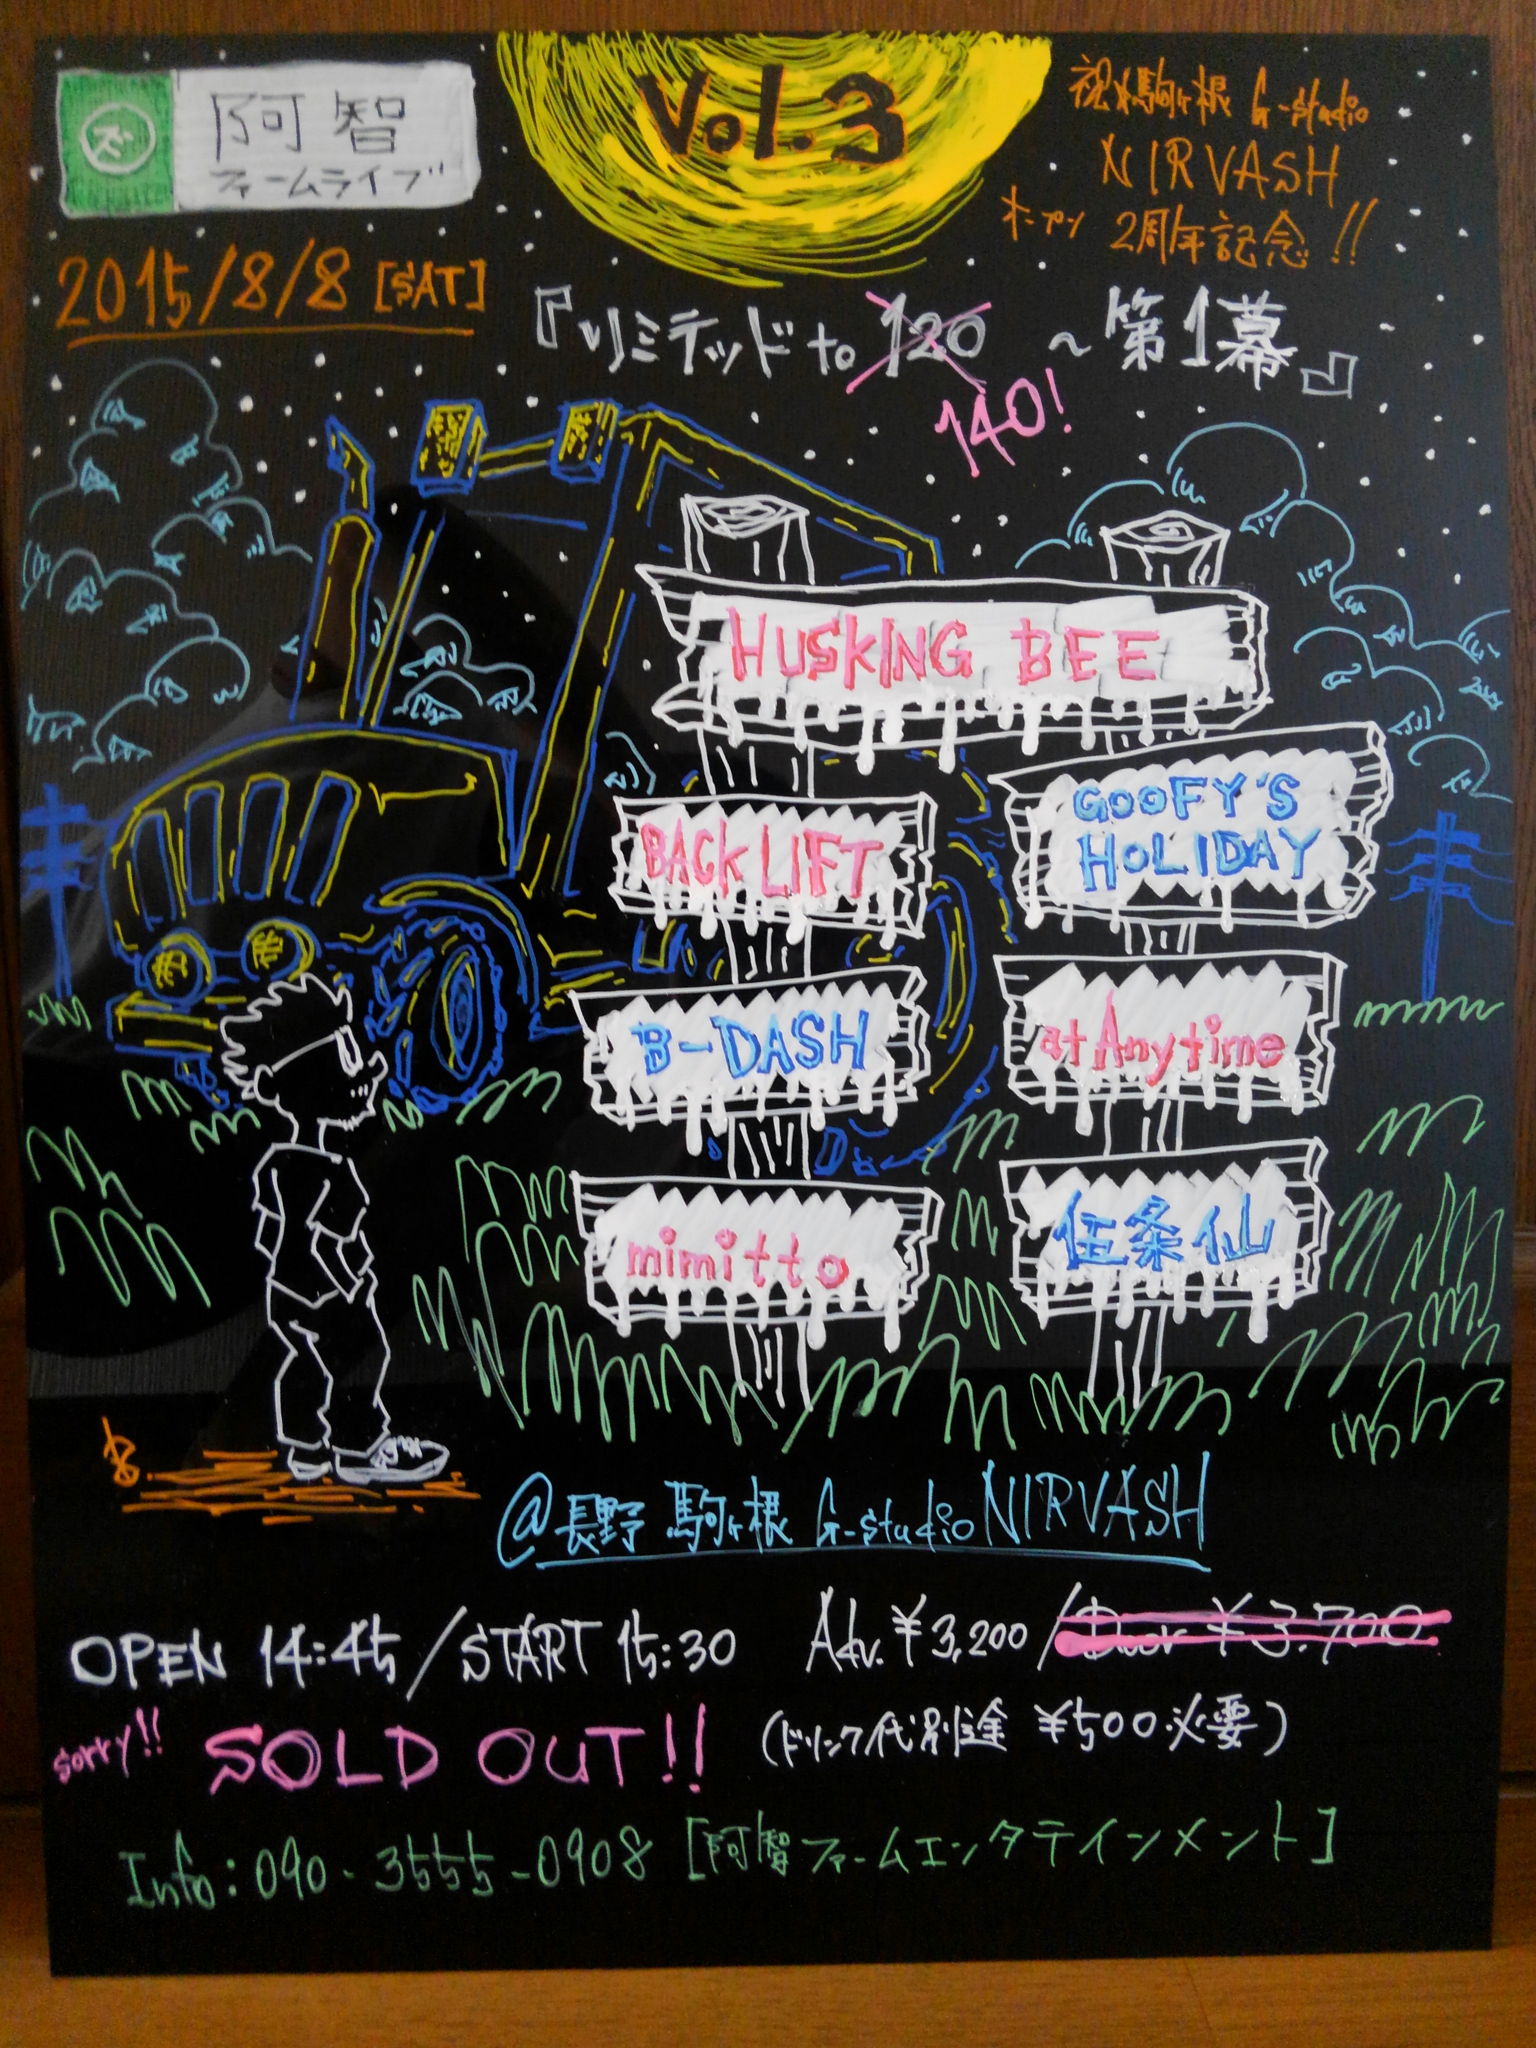 阿智
ファームライブ
Vol.3
祝★駒ヶ根 G-studio
NIRVASH
オープン 2周年記念!!
2015/8/8 [SAT]
『リミテッド to 120 ~ 第1幕』
140!
HUSKING BEE
BACK LIFT
GOOFY'S
HOLIDAY
B-DASH
at Anytime
mimitto
伍条仙
@長野 駒ヶ根 G-studio NIRVASH
OPEN 14:45/START 15:30 Adv. ¥3,200/Door ¥3.700
sorry!! SOLD OUT!! (ドリンク代別途 ¥500必要)
Info: 090-3555-0908 [阿智ファームエンタテインメント]